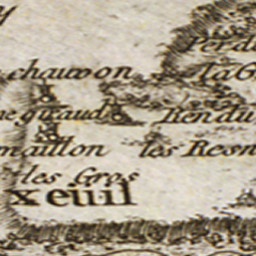 Perdu
chauvon laG
giraud Rendu
maillon les Resn
les Gros
xeüil